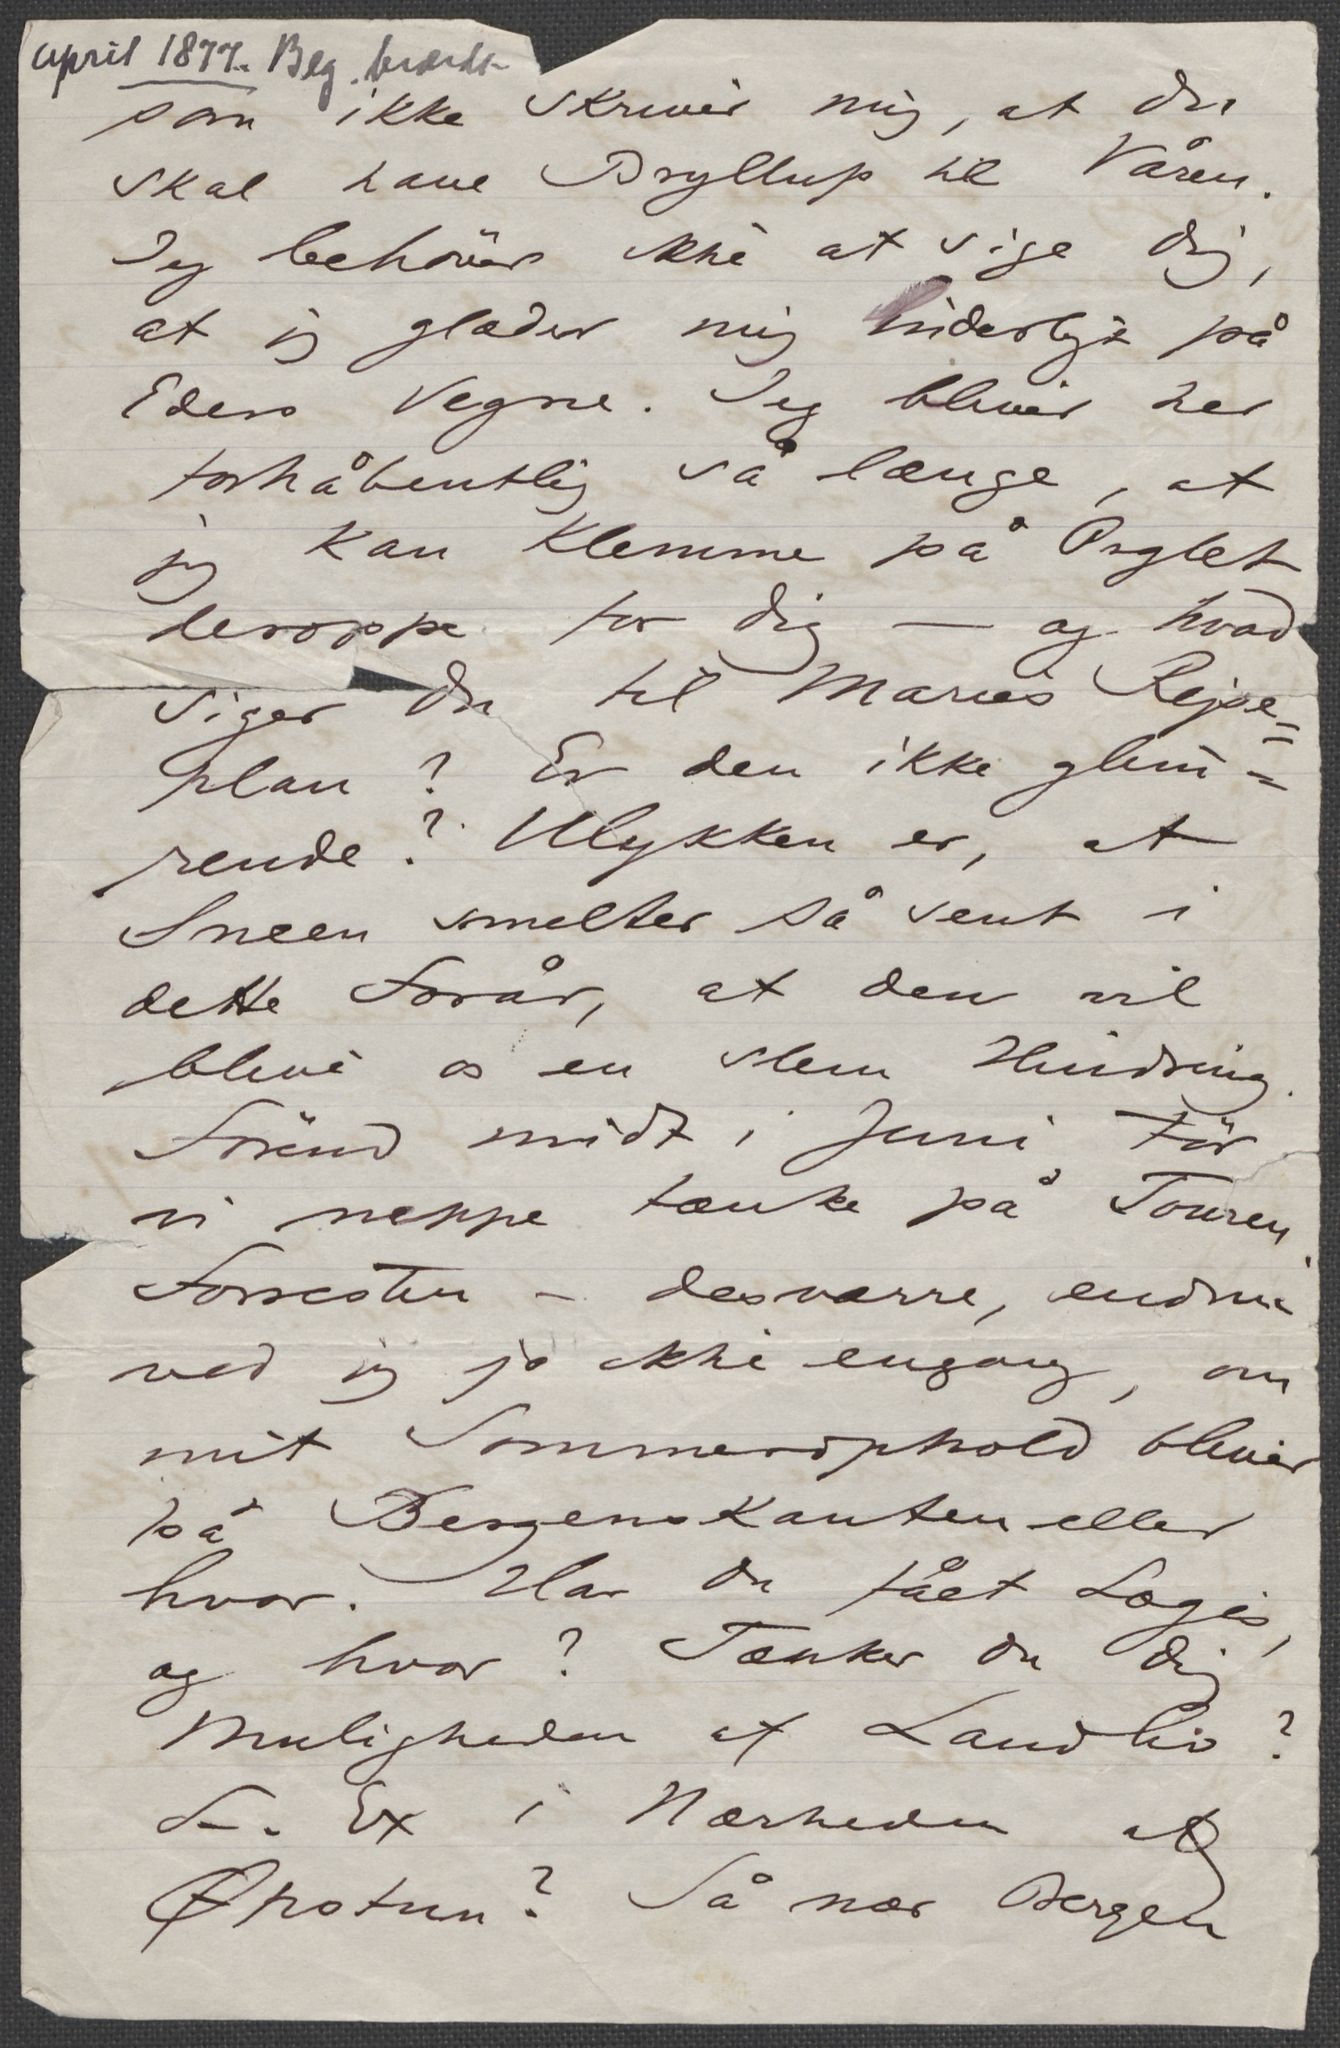 april 1877. Beg. brændt
som ikke skriver mig, at du
skal have Bryllup til Våren.
Jeg behöver ikke at sige dig,
at jeg glæder mig inderligt på
Eders Vegne. Jeg bliver her
forhåbentlig så længe, at
jeg kan klemme på Orglet
deroppe for dig — og hvad
siger du til Maries Rejse=
plan? Er den ikke glim=
rende? Ulykken er, at
Sneen smelter så sent i
dette Forår, at den vil
blive os en slem Hindring.
Förend midt i Juni tör
vi neppe tænke på Touren.
Forresten – desværre, endnu
ved jeg jo ikke engang, om
mit Sommerophold bliver
på Bergenskanten eller
hvor. Har du fået Logis,
og hvor? Tænker du dig
Muligheden af Landliv?
F. Ex i Nærheden af
Øpstun? Så nær Bergen